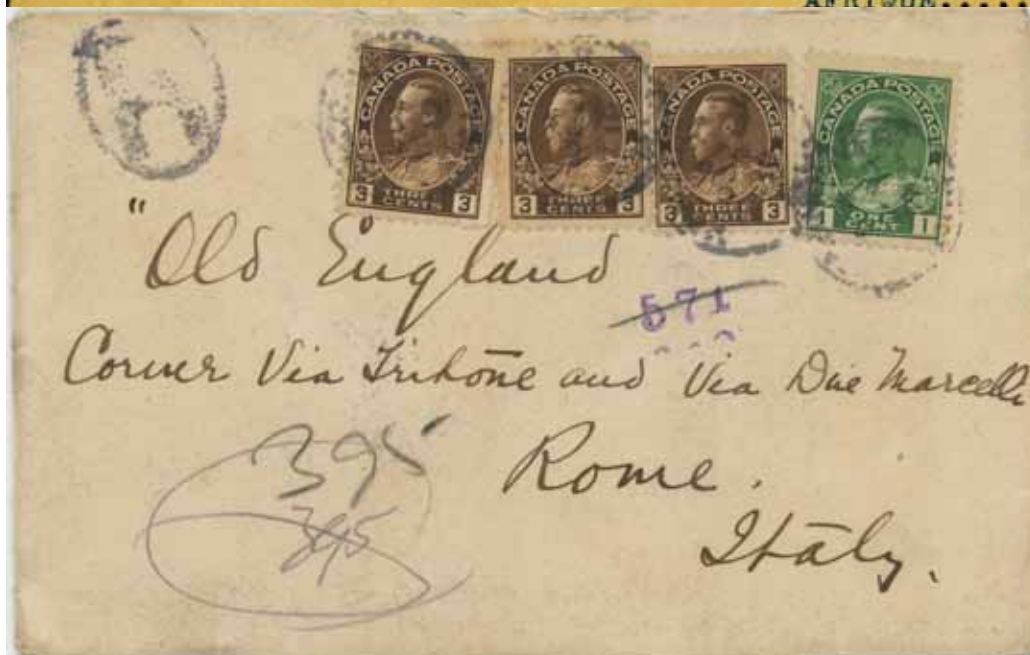 CANADA POSTAGE
3 THREE CENTS 3
CANADA POSTAGE
3 THREE CENTS 3
CANADA POSTAGE
3 THREE CENTS 3
CANADA POSTAGE
1 ONE CENT 1
R
"Old England
571
Corner Via Tritone and Via Due Marcelli
395
395
Rome.
Italy.